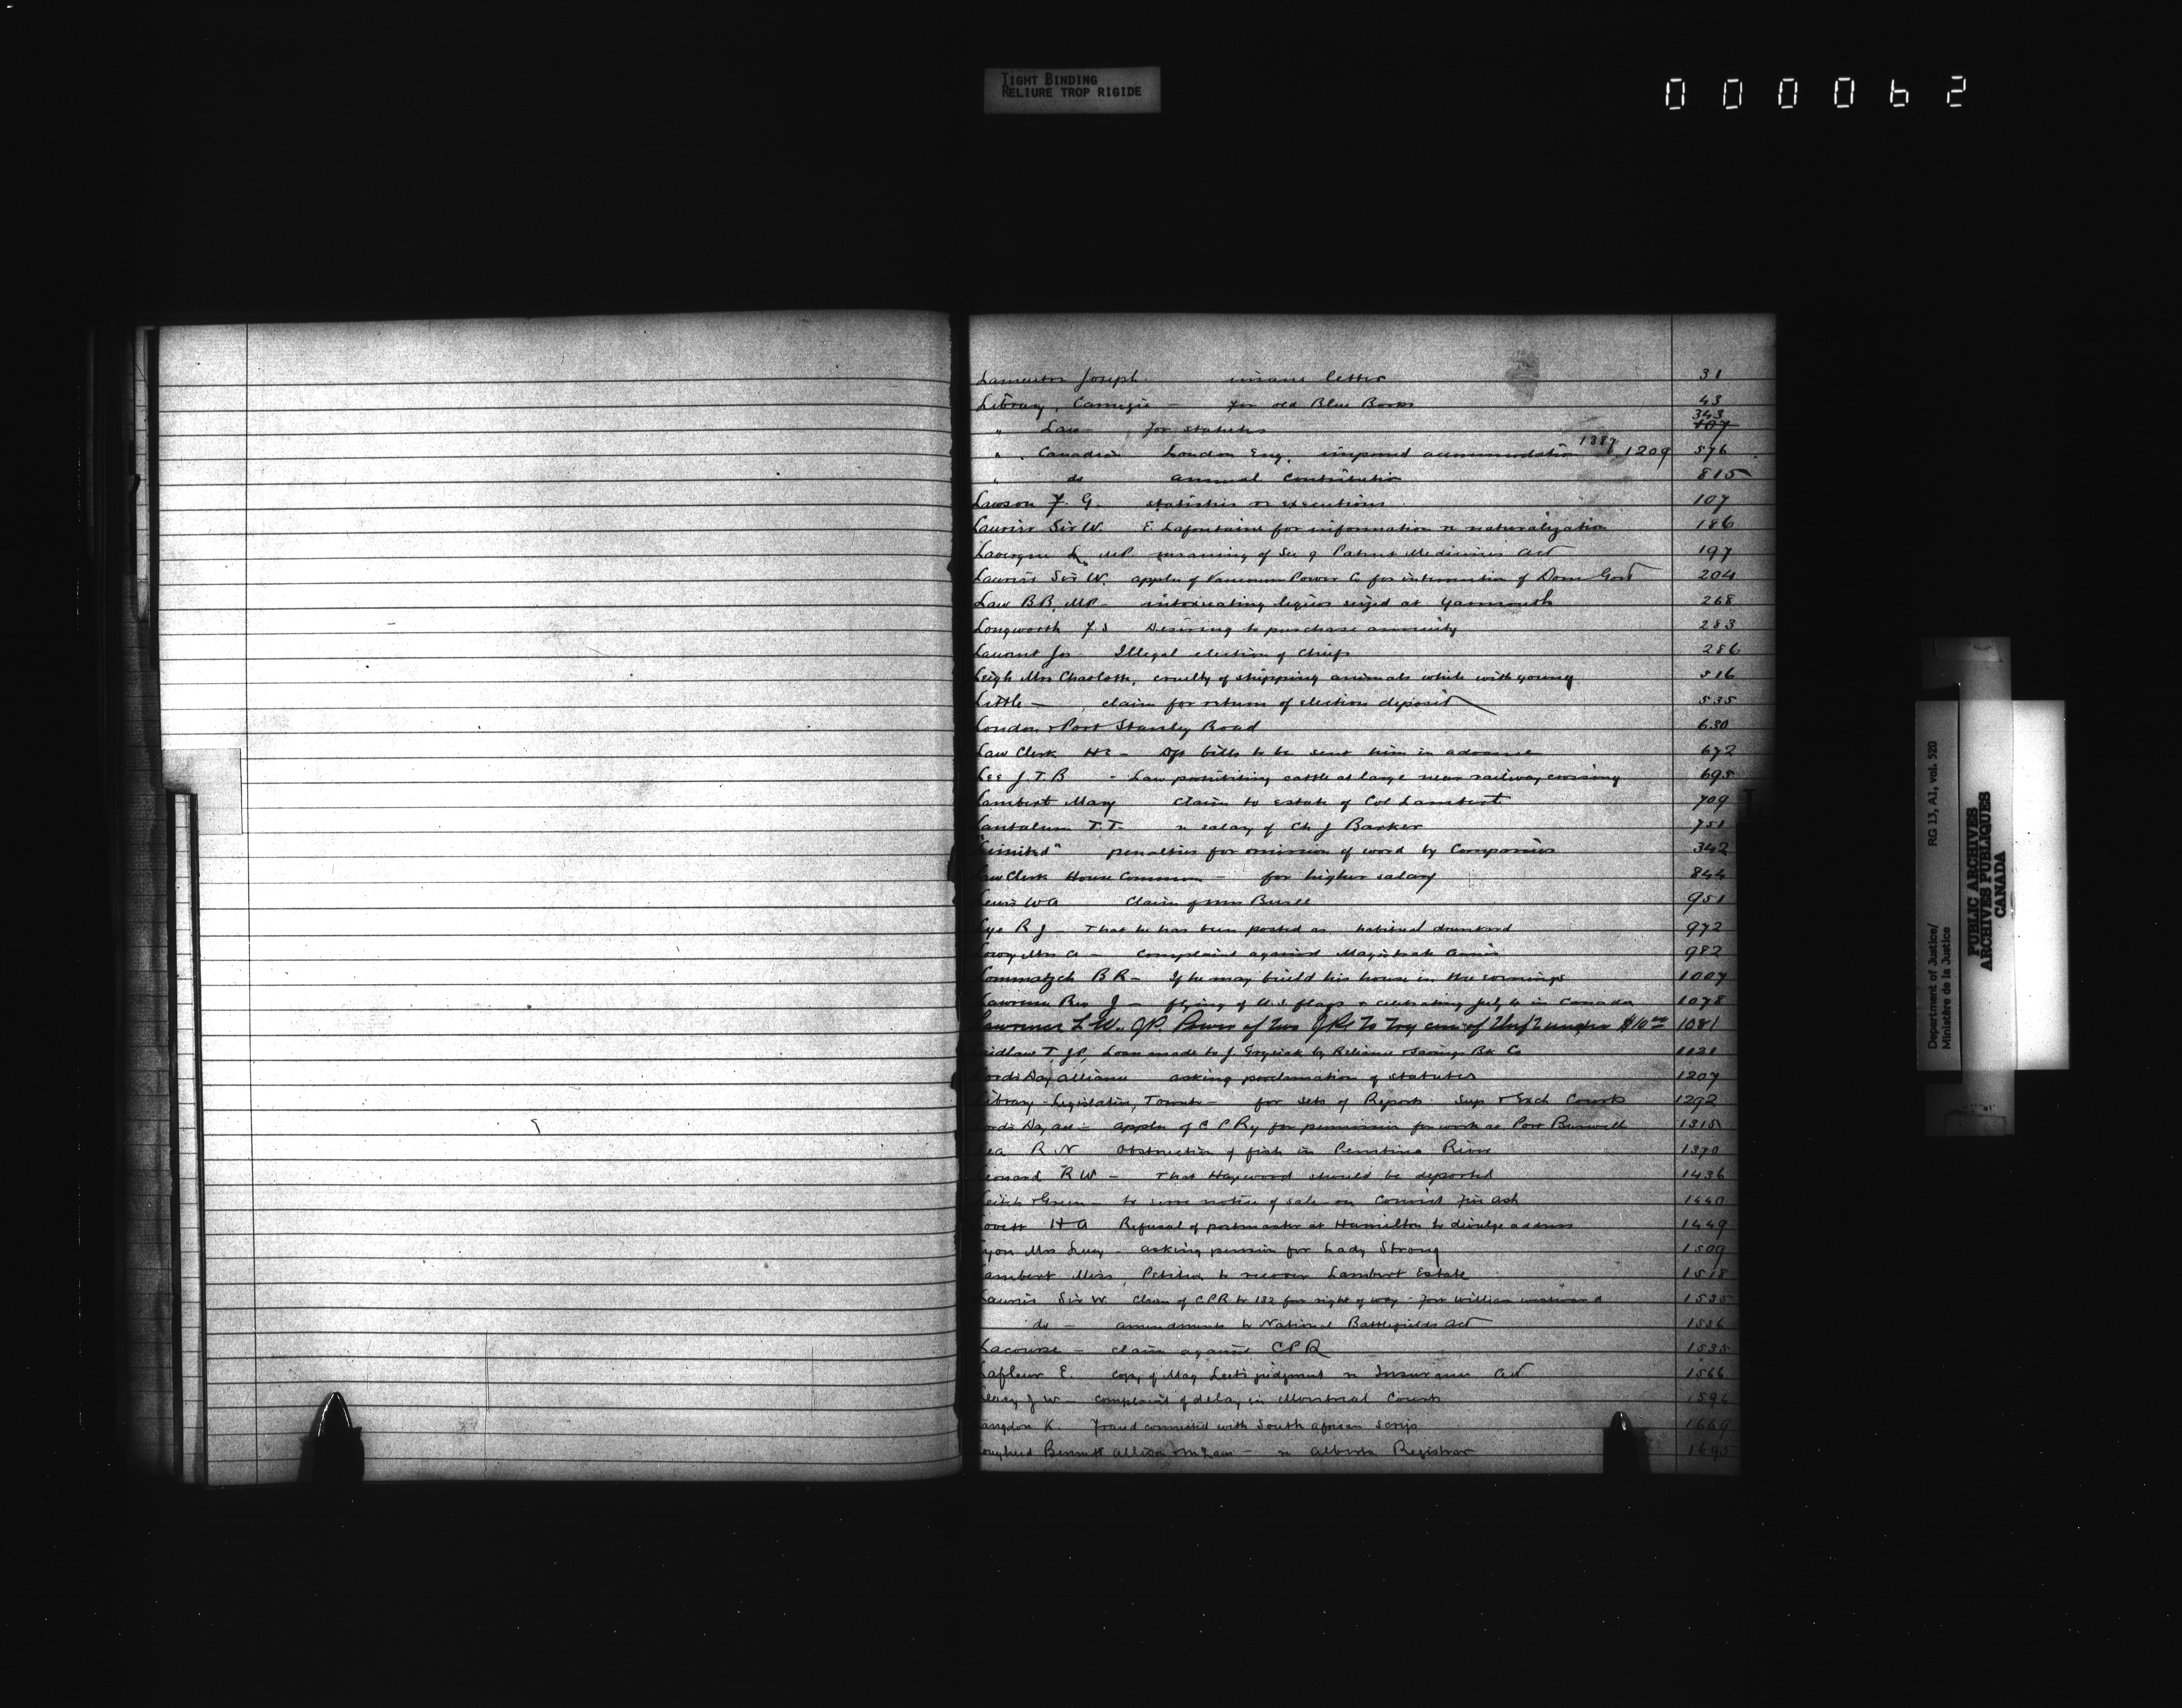 TIGHT BINDING
RELIURE TROP RIGIDE
000062
Joseph insane letter 31
Library, Carnegie - for old Blue Books 43
" Law for statutes 343 107
" Canadian London Eng. improved accommodation 1387 1209 576
" do annual contribution 815
Lawson F. G. statistics re executions 107
Laurier Sir W. E. Lafontaine for information re naturalization 186
Lavergne L. MP meaning of Sec 9 Patent Medicines Act 197
Laurier Sir W. appln of Vancouver Power Co for intervention of Dom Govt 204
Law BB, MP - intoxicating liquors seized at Yarmouth 268
Longworth F.S Desiring to purchase annuity 283
Laurent Jos Illegal election of chiefs 286
Leigh Mrs Charlotte, cruelty of shipping animals while with young 516
Little - , claim for return of election deposit 535
London & Port Stanley Road 630
Law Clerk HC - Dft bills to be sent him in advance 672
Lee J.T.B - Law prohibiting cattle at large near railway crossing 695
Lambert Mary Claim to estate of Col Lambert 709
Lantalum T.T. re salary of Ch J Barker 751
"Limited" penalties for omission of word by Companies 342
Law Clerk House Commons - for higher salary 844
Lewis WA Claim of 951
Lye R J - That he has been posted as habitual drunkard 972
Mrs A - complaint against Magistrate 982
Lommatzch B R - If he may build his house in the evenings 1007
Lawrence Rev J - flying of U.S flags & celebrating July 4 in Canada 1078
Lawrence L W. JP. Power of two JPs to try case of theft under $10 00 1081
Laidlaw T. JP, Loan made to J by Reliance & Savings Bk Co 1121
Lords Day Alliance asking proclamation of statutes 1207
Library - Legislative, Toronto - for sets of Reports Sup & Exch Courts 1292
Lords Day All - appln of C.P.Ry for permission for work at Port Burwell 1315
Lea R. N Obstruction of fish in Pembina River 1370
Leonard R W - That Haywood should be deported 1436
Leitch & Green - to serve notice of sale on Convict 1440
Lovett H A Refusal of postmaster at Hamilton to divulge address 1449
Lyon Mrs Lucy - asking pension for Lady Strong 1509
Lambert Miss, Petition to recover Lambert Estate 1518
Laurier Sir W Claim of CPR to 132 for right of way - Fort William westward 1535
do - amendments to National Battlefields Act 1536
Lacourse - claim against CPR 1535
Lafleur E. copy of Mag Leet's judgment re Insurance Act 1566
Leary J W - complaint of delay in Montreal Courts 1596
Langdon K. Fraud connected with South African scrip 1669
Lougheed Bennett Allison McLaws - re Alberta Registrar 1695
Department of Justice/ RG 13, A1, vol. 520
Ministère de la Justice
PUBLIC ARCHIVES
ARCHIVES PUBLIQUES
CANADA